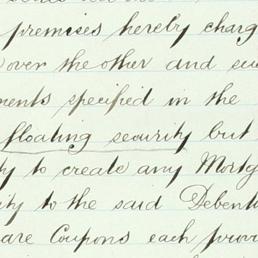 premises hereby charg
over the other and
ments specified in the
floating security but
ty to create any Mortg
ity to the said Debent
are Coupons each prov